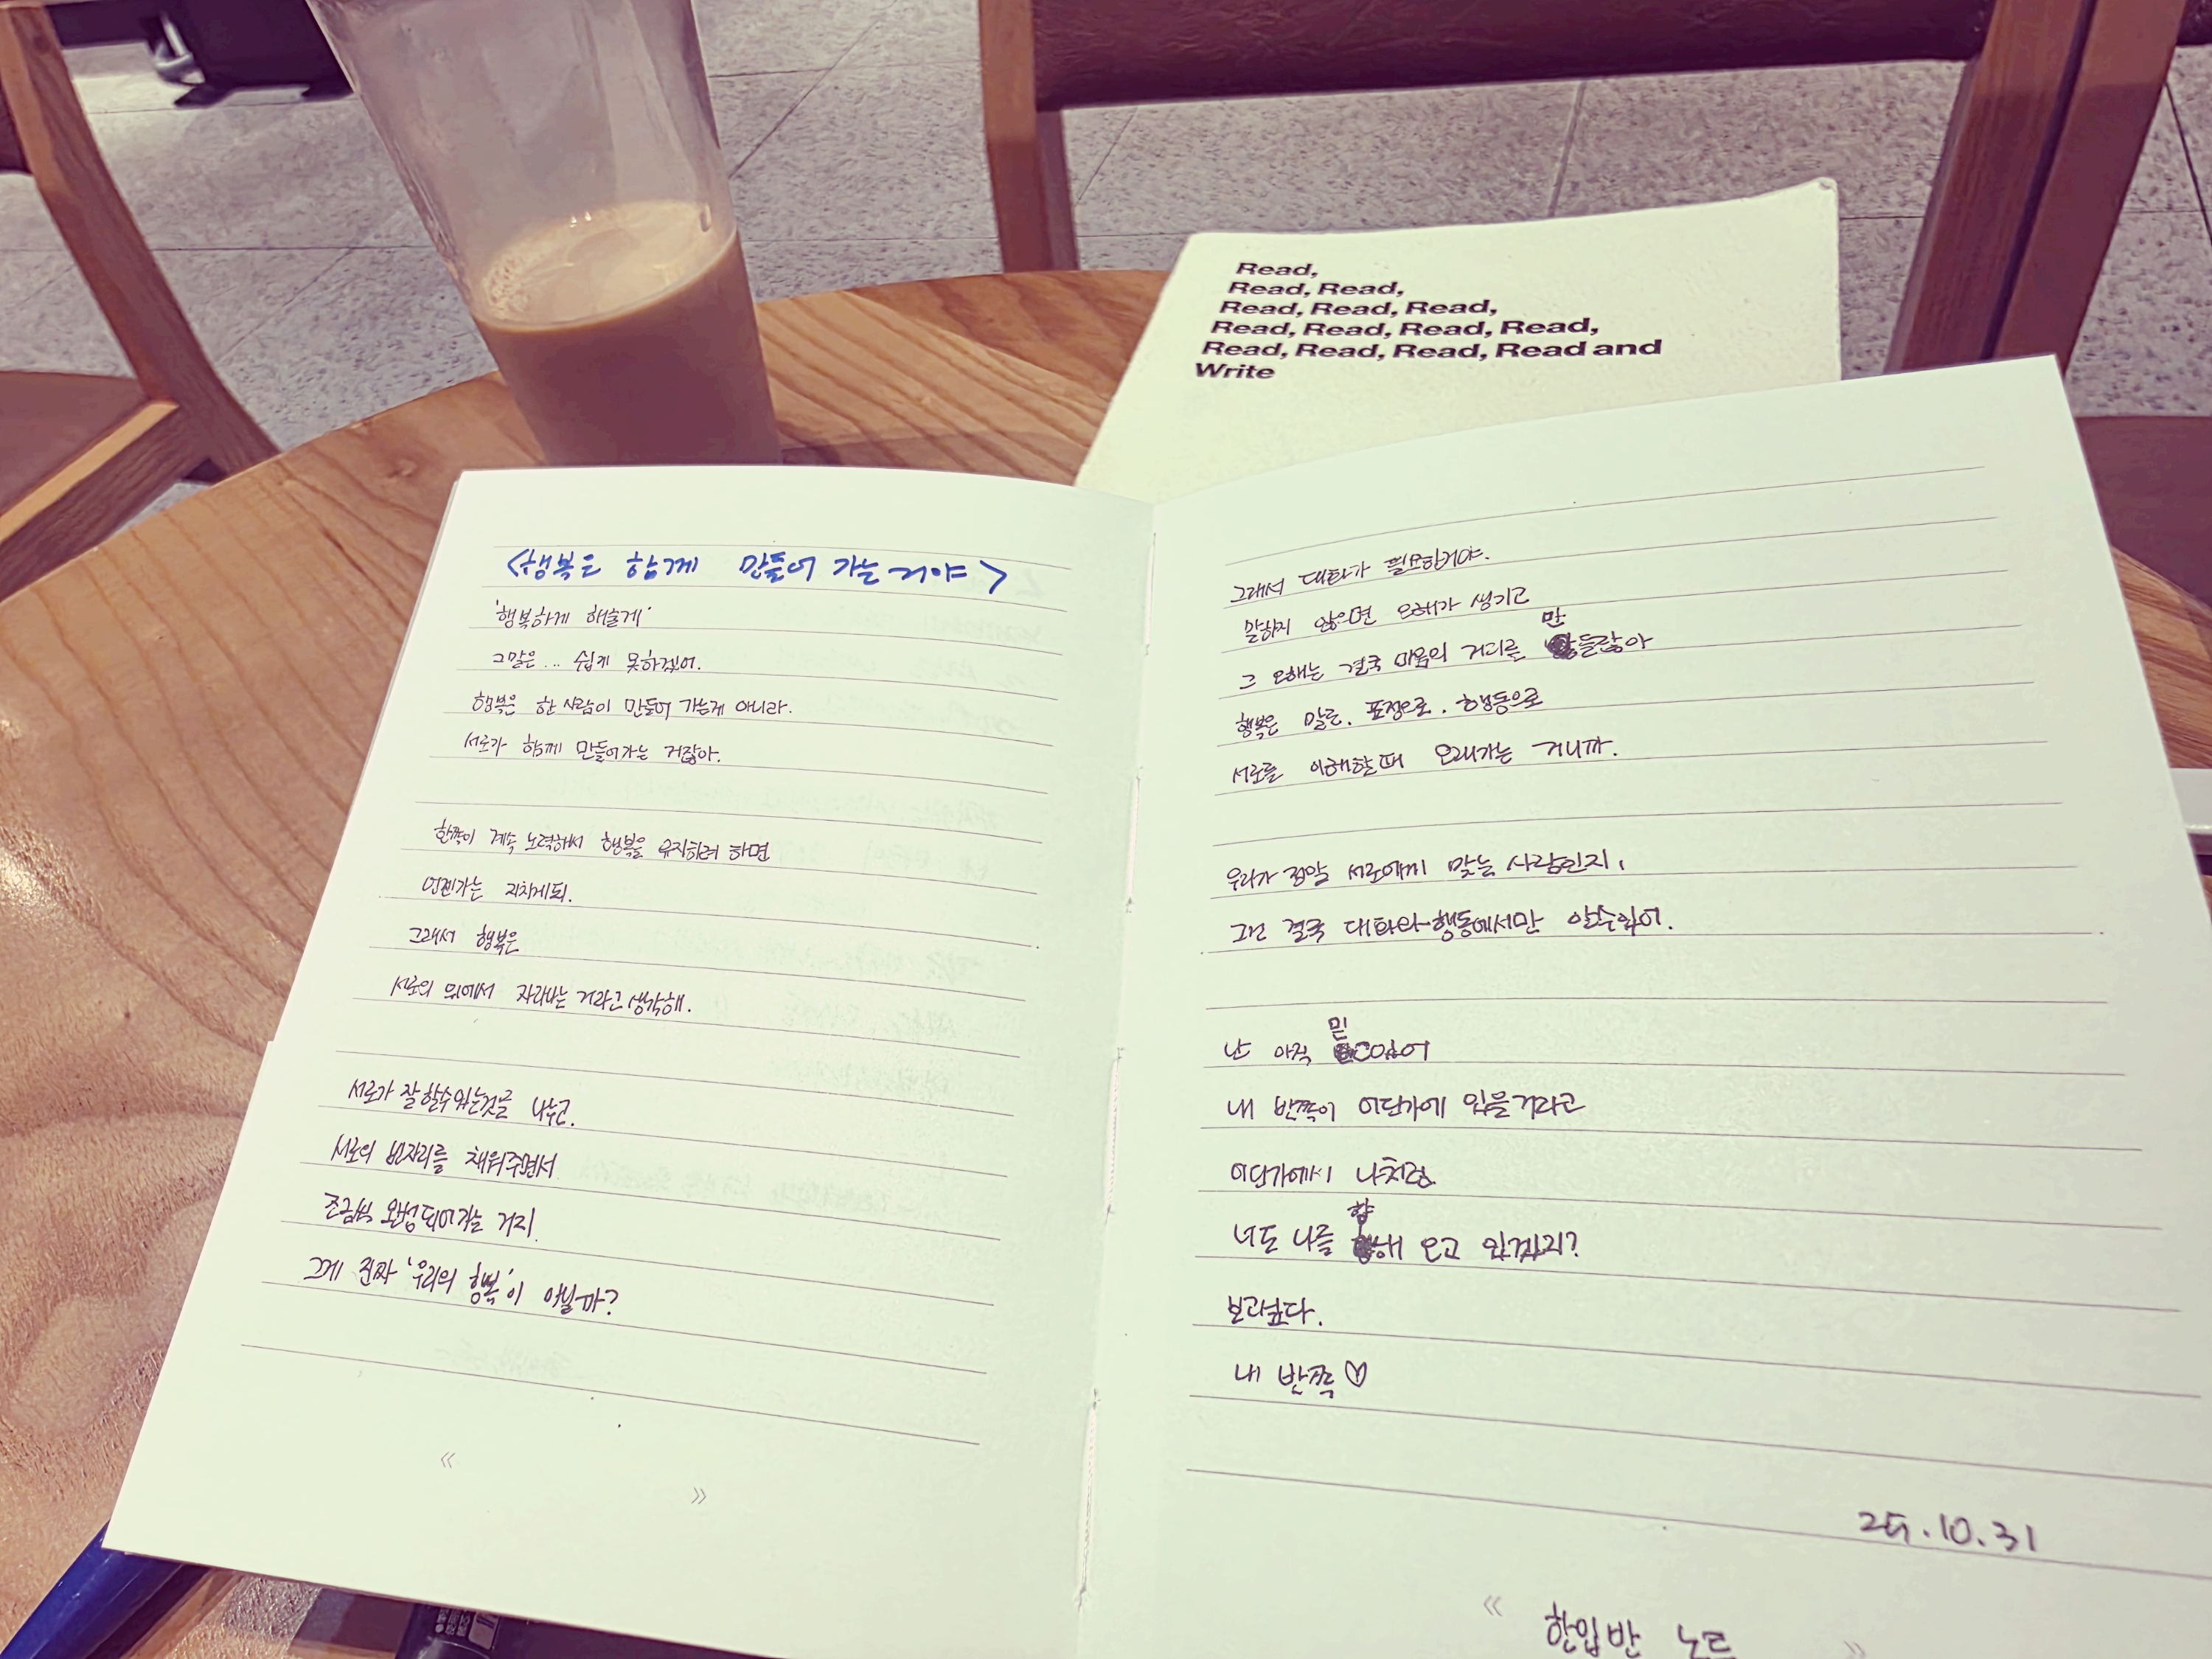 Read,
Read, Read,
Read, Read, Read,
Read, Read, Read, Read,
Read, Read, Read, Read and
Write
<행복은 함께 만들어 가는 거야>
'행복하게 해줄게'
그말은... 쉽게 못하겠어.
행복은 한 사람이 만들어 가는게 아니라.
서로가 함께 만들어가는 거잖아.
한쪽이 계속 노력해서 행복을 유지하려 하면
언젠가는 지치게되.
그래서 행복은
서로의 위에서 자라나는 거라고 생각해.
서로가 잘할수있는것을 나누고.
서로의 빈자리를 채워주면서
조금씩 완성되어가는 거지.
그게 진짜 '우리의 행복'이 아닐까?
그래서 대화가 필요한거야.
말하지 않으면 오해가 생기고
그 오해는 결국 마음의 거리를 만들잖아
행복은 말로. 표정으로. 행동으로
서로를 이해할때 오래가는 거니까.
우리가 정말 서로에게 맞는 사람인지,
그건 결국 대화와 행동에서만 알수있어.
난 아직 믿고있어
내 반쪽이 어딘가에 있을거라고
어딘가에서 나처럼
너도 나를 향해 오고 있겠지?
보고싶다.
내 반쪽♡
25.10.31
« 한입반 노트 »